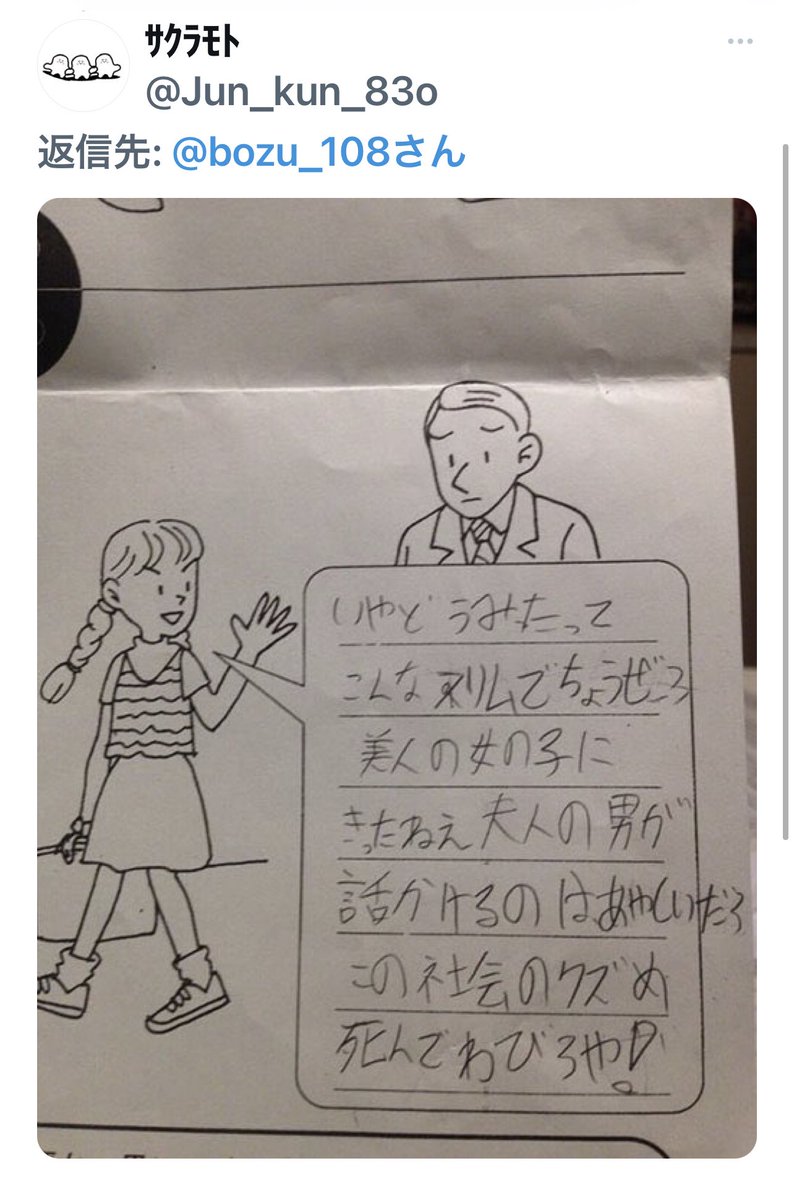 サクラモト
@Jun_kun_83o
返信先: @bozu_108さん
いやどうみたって
こんなスリムで
美人の女の子に
きったねえ夫人の男が
話かけるのはあやしいだろ
この社会のクズめ
死んでわびろや!